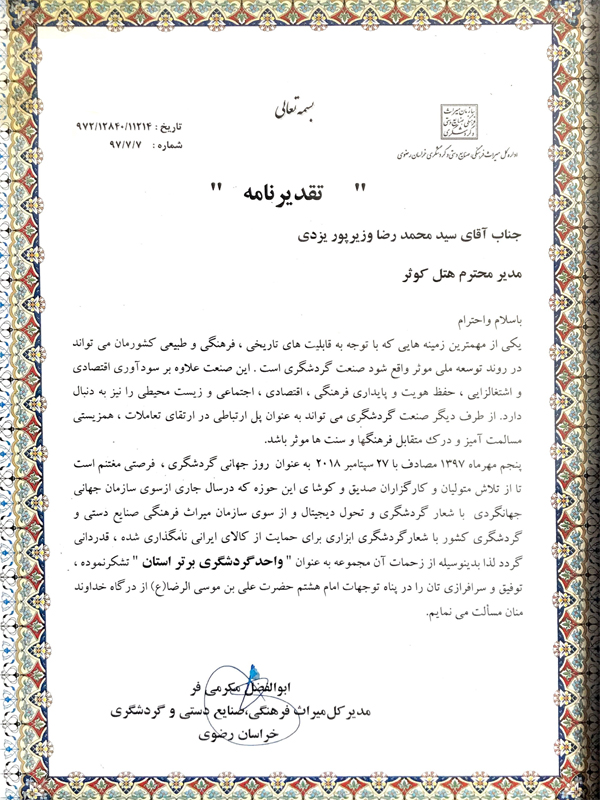 بسمه تعالی
سازمان میراث
فرهنگی صنایع دستی
و گردشگری
اداره کل میراث فرهنگی، صنایع دستی و گردشگری خراسان رضوی
تاریخ : ۹۷۲/۱۲۸۴۰/۱۱۲۱۴
شماره : ۹۷/۷/۷
" تقدیرنامه "
جناب آقای سید محمد رضا وزیرپور یزدی
مدیر محترم هتل کوثر
باسلام واحترام
یکی از مهمترین زمینه هایی که با توجه به قابلیت های تاریخی ، فرهنگی و طبیعی کشورمان می تواند
در روند توسعه ملی موثر واقع شود صنعت گردشگری است . این صنعت علاوه بر سودآوری اقتصادی
و اشتغالزایی ، حفظ هویت و پایداری فرهنگی ، اقتصادی ، اجتماعی و زیست محیطی را نیز به دنبال
دارد. از طرف دیگر صنعت گردشگری می تواند به عنوان پل ارتباطی در ارتقای تعاملات ، همزیستی
مسالمت آمیز و درک متقابل فرهنگها و سنت ها موثر باشد.
پنجم مهرماه ۱۳۹۷ مصادف با ۲۷ سپتامبر ۲۰۱۸ به عنوان روز جهانی گردشگری ، فرصتی مغتنم است
تا از تلاش متولیان و کارگزاران صدیق و کوشا ی این حوزه که درسال جاری ازسوی سازمان جهانی
جهانگردی با شعار گردشگری و تحول دیجیتال و از سوی سازمان میراث فرهنگی صنایع دستی و
گردشگری کشور با شعارگردشگری ابزاری برای حمایت از کالای ایرانی نامگذاری شده ، قدردانی
گردد لذا بدینوسیله از زحمات آن مجموعه به عنوان " واحدگردشگری برتر استان " تشکرنموده ،
توفیق و سرافرازی تان را در پناه توجهات امام هشتم حضرت علی بن موسی الرضا(ع) از درگاه خداوند
منان مسألت می نمایم.
ابوالفضل مکرمی فر
مدیرکل میراث فرهنگی،صنایع دستی و گردشگری
خراسان رضوی